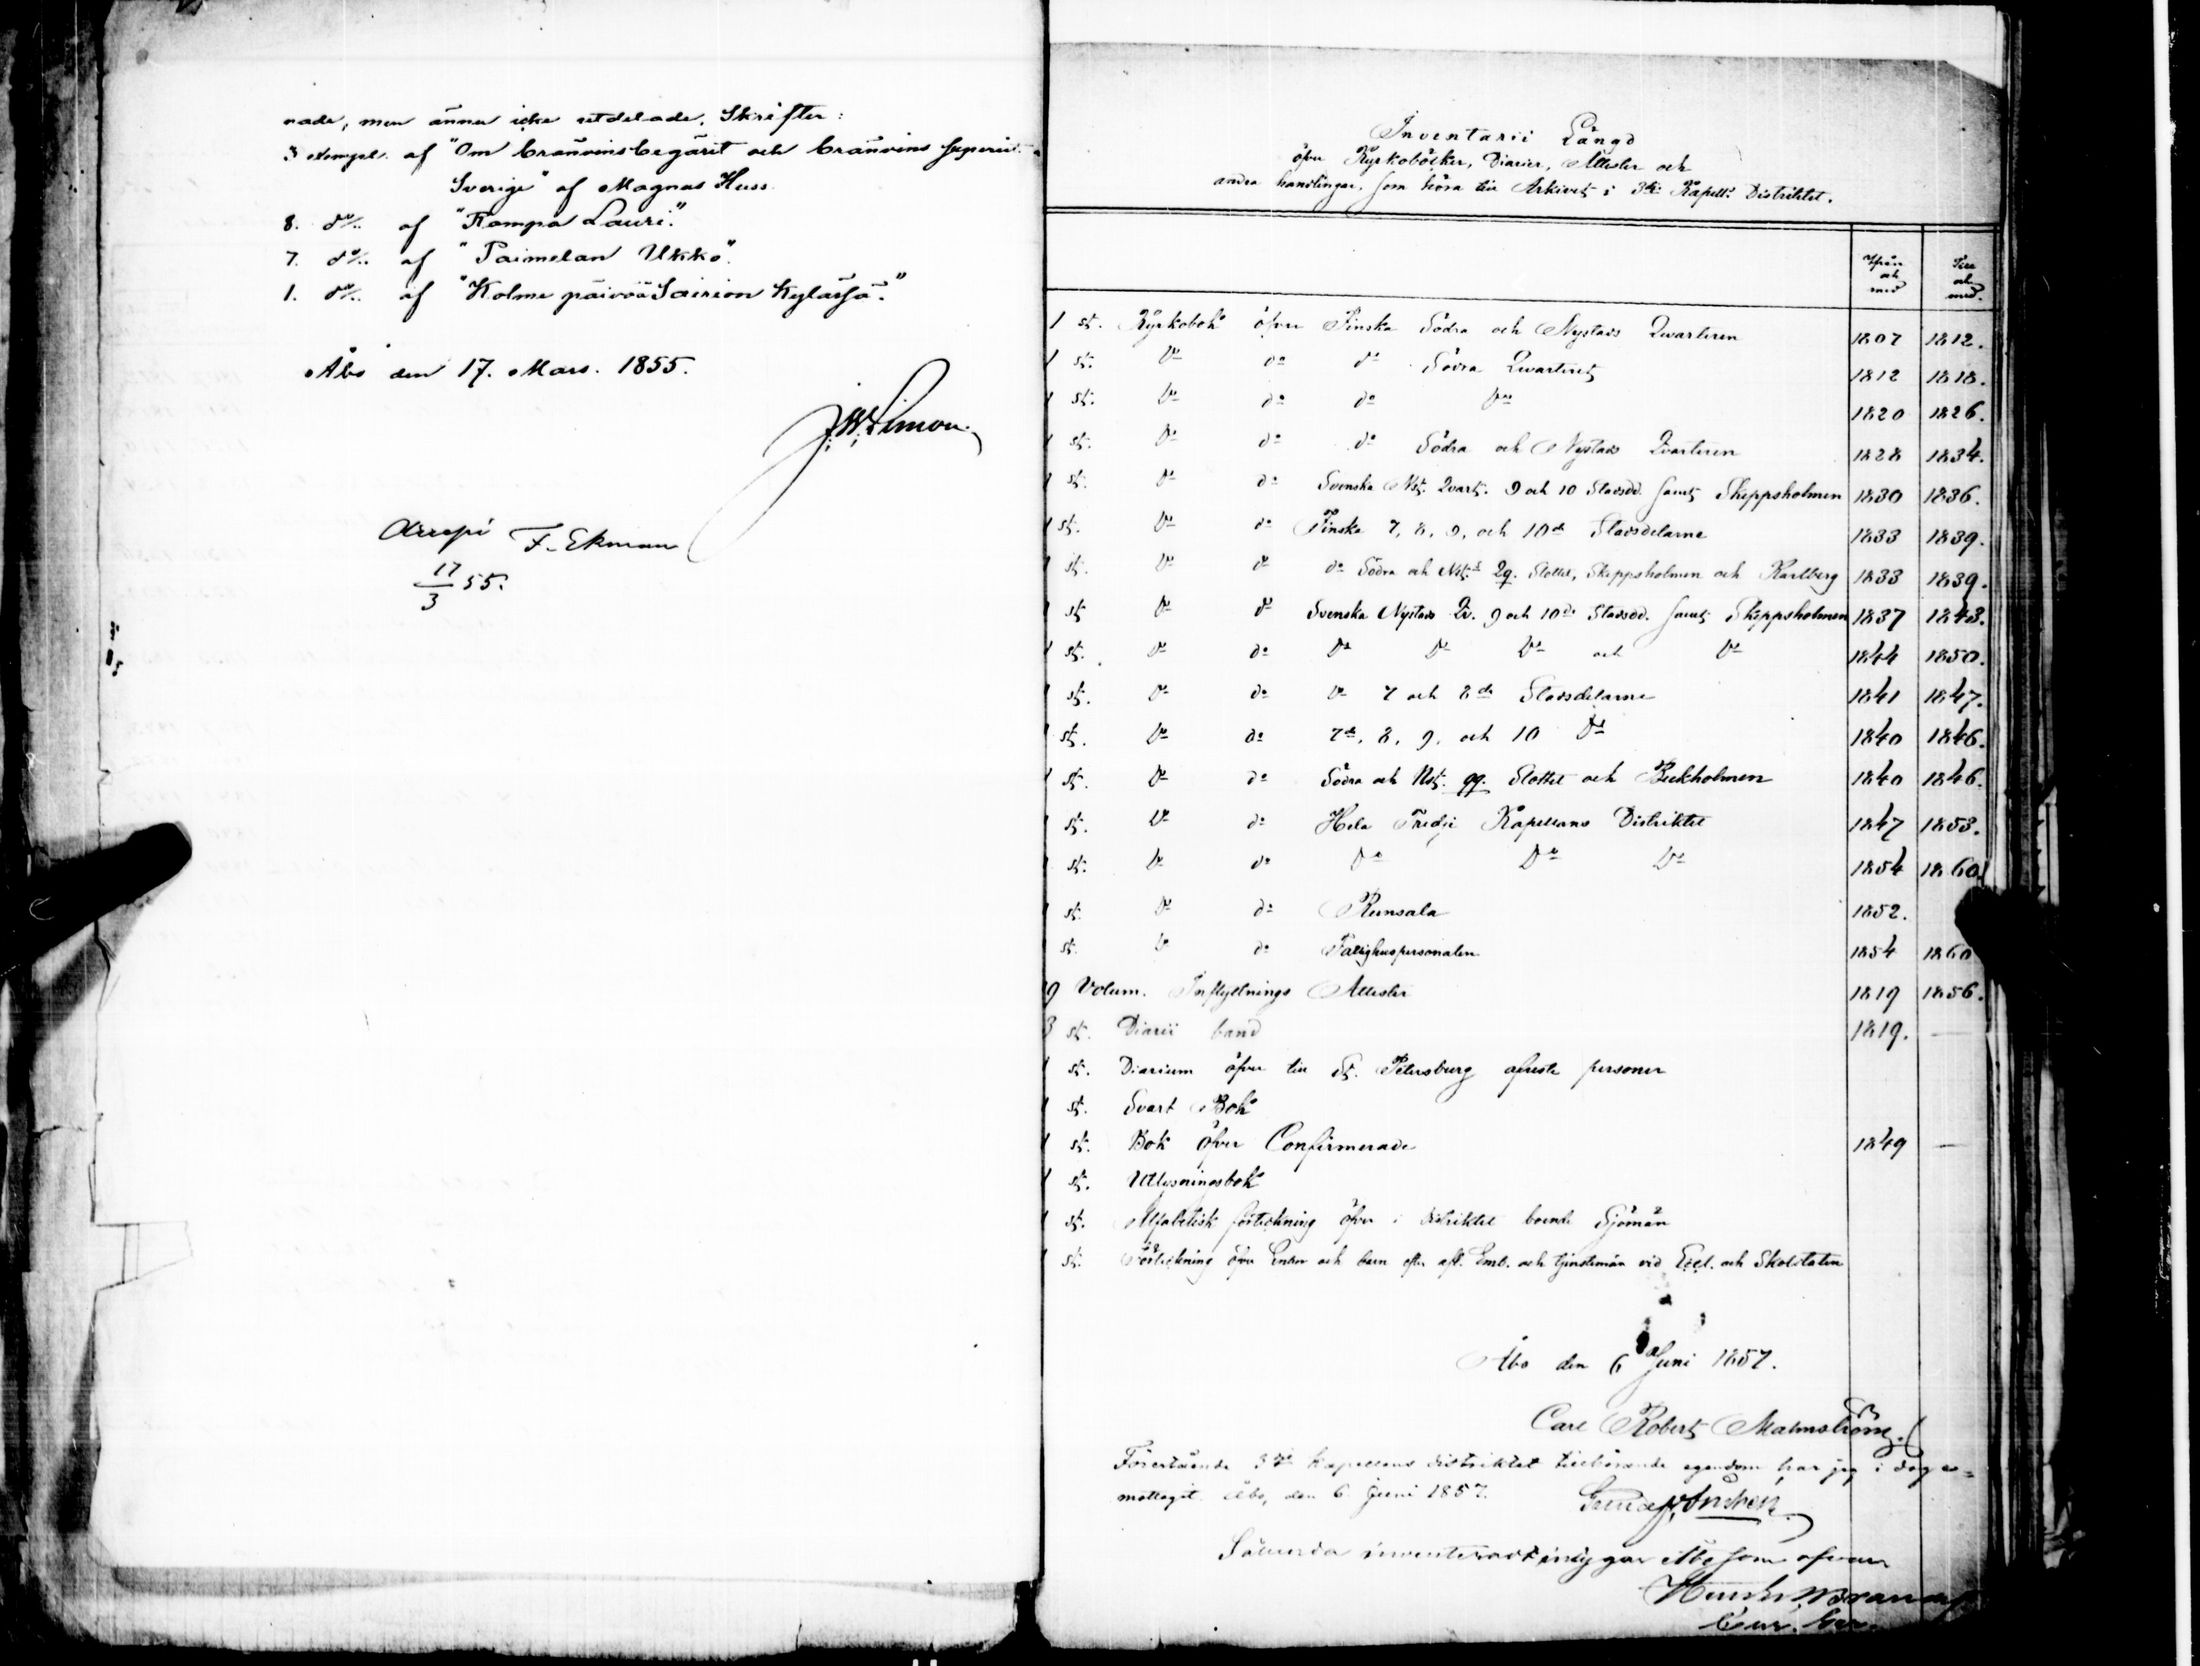 nade, men ännu icke utdelade, Skrifter:
3 exempl. af "Om bränvinsbegärit och bränvins
Sverige" af Magnus Huss.
8. do/. af "Kampa Lauri."
7. do/. af "Paimelan Ukko".
1. do/. af "Kolme päivää Sairion kylässä."
Åbo den 17. Mars. 1855.
Arrepi F. Ekman
17/3 55.
Inventarii Längd
öfver Kyrkoböcker, Diarier, Attester och
andra handlingar, som höra till Arkivet i 3die Kapell: Distriktet.
Ifrån och med
Till och med.
1 st. Kyrkobok öfver Finska Södra och Nystads Qvarteren 1807 1812.
1 st. Do do do Södra Qvarteret 1812 1818.
1 st. Do do do Do 1820 1826.
1 st. Do do do Södra och Nystads Qvarteren 1828 1834.
1 st. Do do Svenska Nst. Qvart. 9 och 10 Stadsd. samt Skeppsholmen 1830 1836.
1 st. Do do Finska 7, 8, 9, och 10de Stadsdelarne 1833 1839.
1 st. Do do do Södra och Nst.s Qq. Slottet, Skeppsholmen och Karlberg 1833 1839.
1 st. Do do Svenska Nystads Qv. 9 och 10de Stadsd. samt Skeppsholmen 1837 1843.
1 st. Do do Do Do Do och Do 1844 1850.
1 st. Do do Do 7 och 8de Stadsdelarne 1841 1847.
1 st. Do do 7de, 8, 9, och 10 Do 1840 1846.
1 st. Do do Södra och Nst. qq. Slottet och Beckholmen 1840 1846.
1 st. Do do Hela Tredje Kapellans Distriktet 1847 1853.
1 st. Do do Do Do Do 1854 1860.
1 st. Do do Runsala 1852.
1 st. Do do Fattighuspersonalen 1854 1860
9 Volum. Inflyttnings Attester 1819 1856.
3 st. Diarii band 1819. —
1 st. Diarium öfver till St. Petersburg afreste personer
1 st. Svart Bok
1 st. Bok öfver Confirmerade 1849 —
1 st. Utlysningsbok
1 st. Alfabetisk förteckning öfver i distriktet boende Sjömän
1 st. Förteckning öfver Enkor och barn efter afl. Emb. och tjenstemän vid Eccl. och Skolstaten
Åbo den 6 Juni 1857.
Carl Robert Malmström.
Förestående 3die kapellans distriktet tillhörande egendom har jag i dag e=
mottagit. Åbo, den 6. Juni 1857.
Sålunda inventeradt intygar Åbo som ofvan